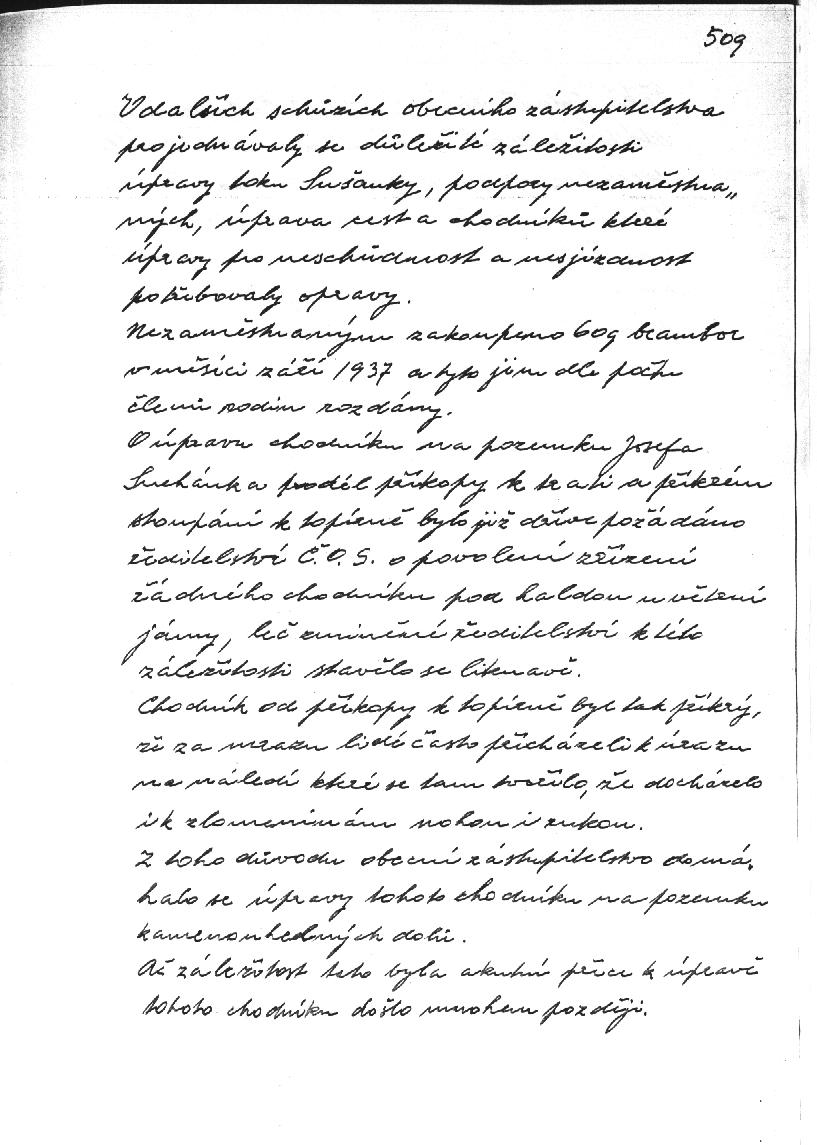 509
V dalších schůzích obecního zástupitelstva
projednávaly se důležité záležitosti
úpravy toku Sušanky, podpory nezaměstna„
ných, úprava cest a chodníků které
úpravy pro neschůdnost a nesjízdnost
potřebovaly opravy.
Nezaměstnaným zakoupeno 60q brambor
v měsíci září 1937 a tyto jim dle počtu
členů rodin rozdány.
O úpravu chodníku na pozemku Josefa
Suchánka podél příkopy k trati a příkrém
stoupání k topírně bylo již dříve požádáno
ředitelství Č.O.S. o povolení zřízení
řádného chodníku pod haldou u větrní
jámy, leč zmíněné ředitelství k této
záležitosti stavělo se liknavě.
Chodník od příkopy k topírně byl tak příkrý,
že za mrazu lidé často přicházeli k úrazu
na náledí které se tam tvořilo, že docházelo
i k zlomeninám nohou i rukou.
Z toho důvodu obecní zástupitelstvo domá„
halo se úpravy tohoto chodníku na pozemku
kamenouhelných dolů.
Ač záležitost tato byla akutní přece k úpravě
tohoto chodníku došlo mnohem později.